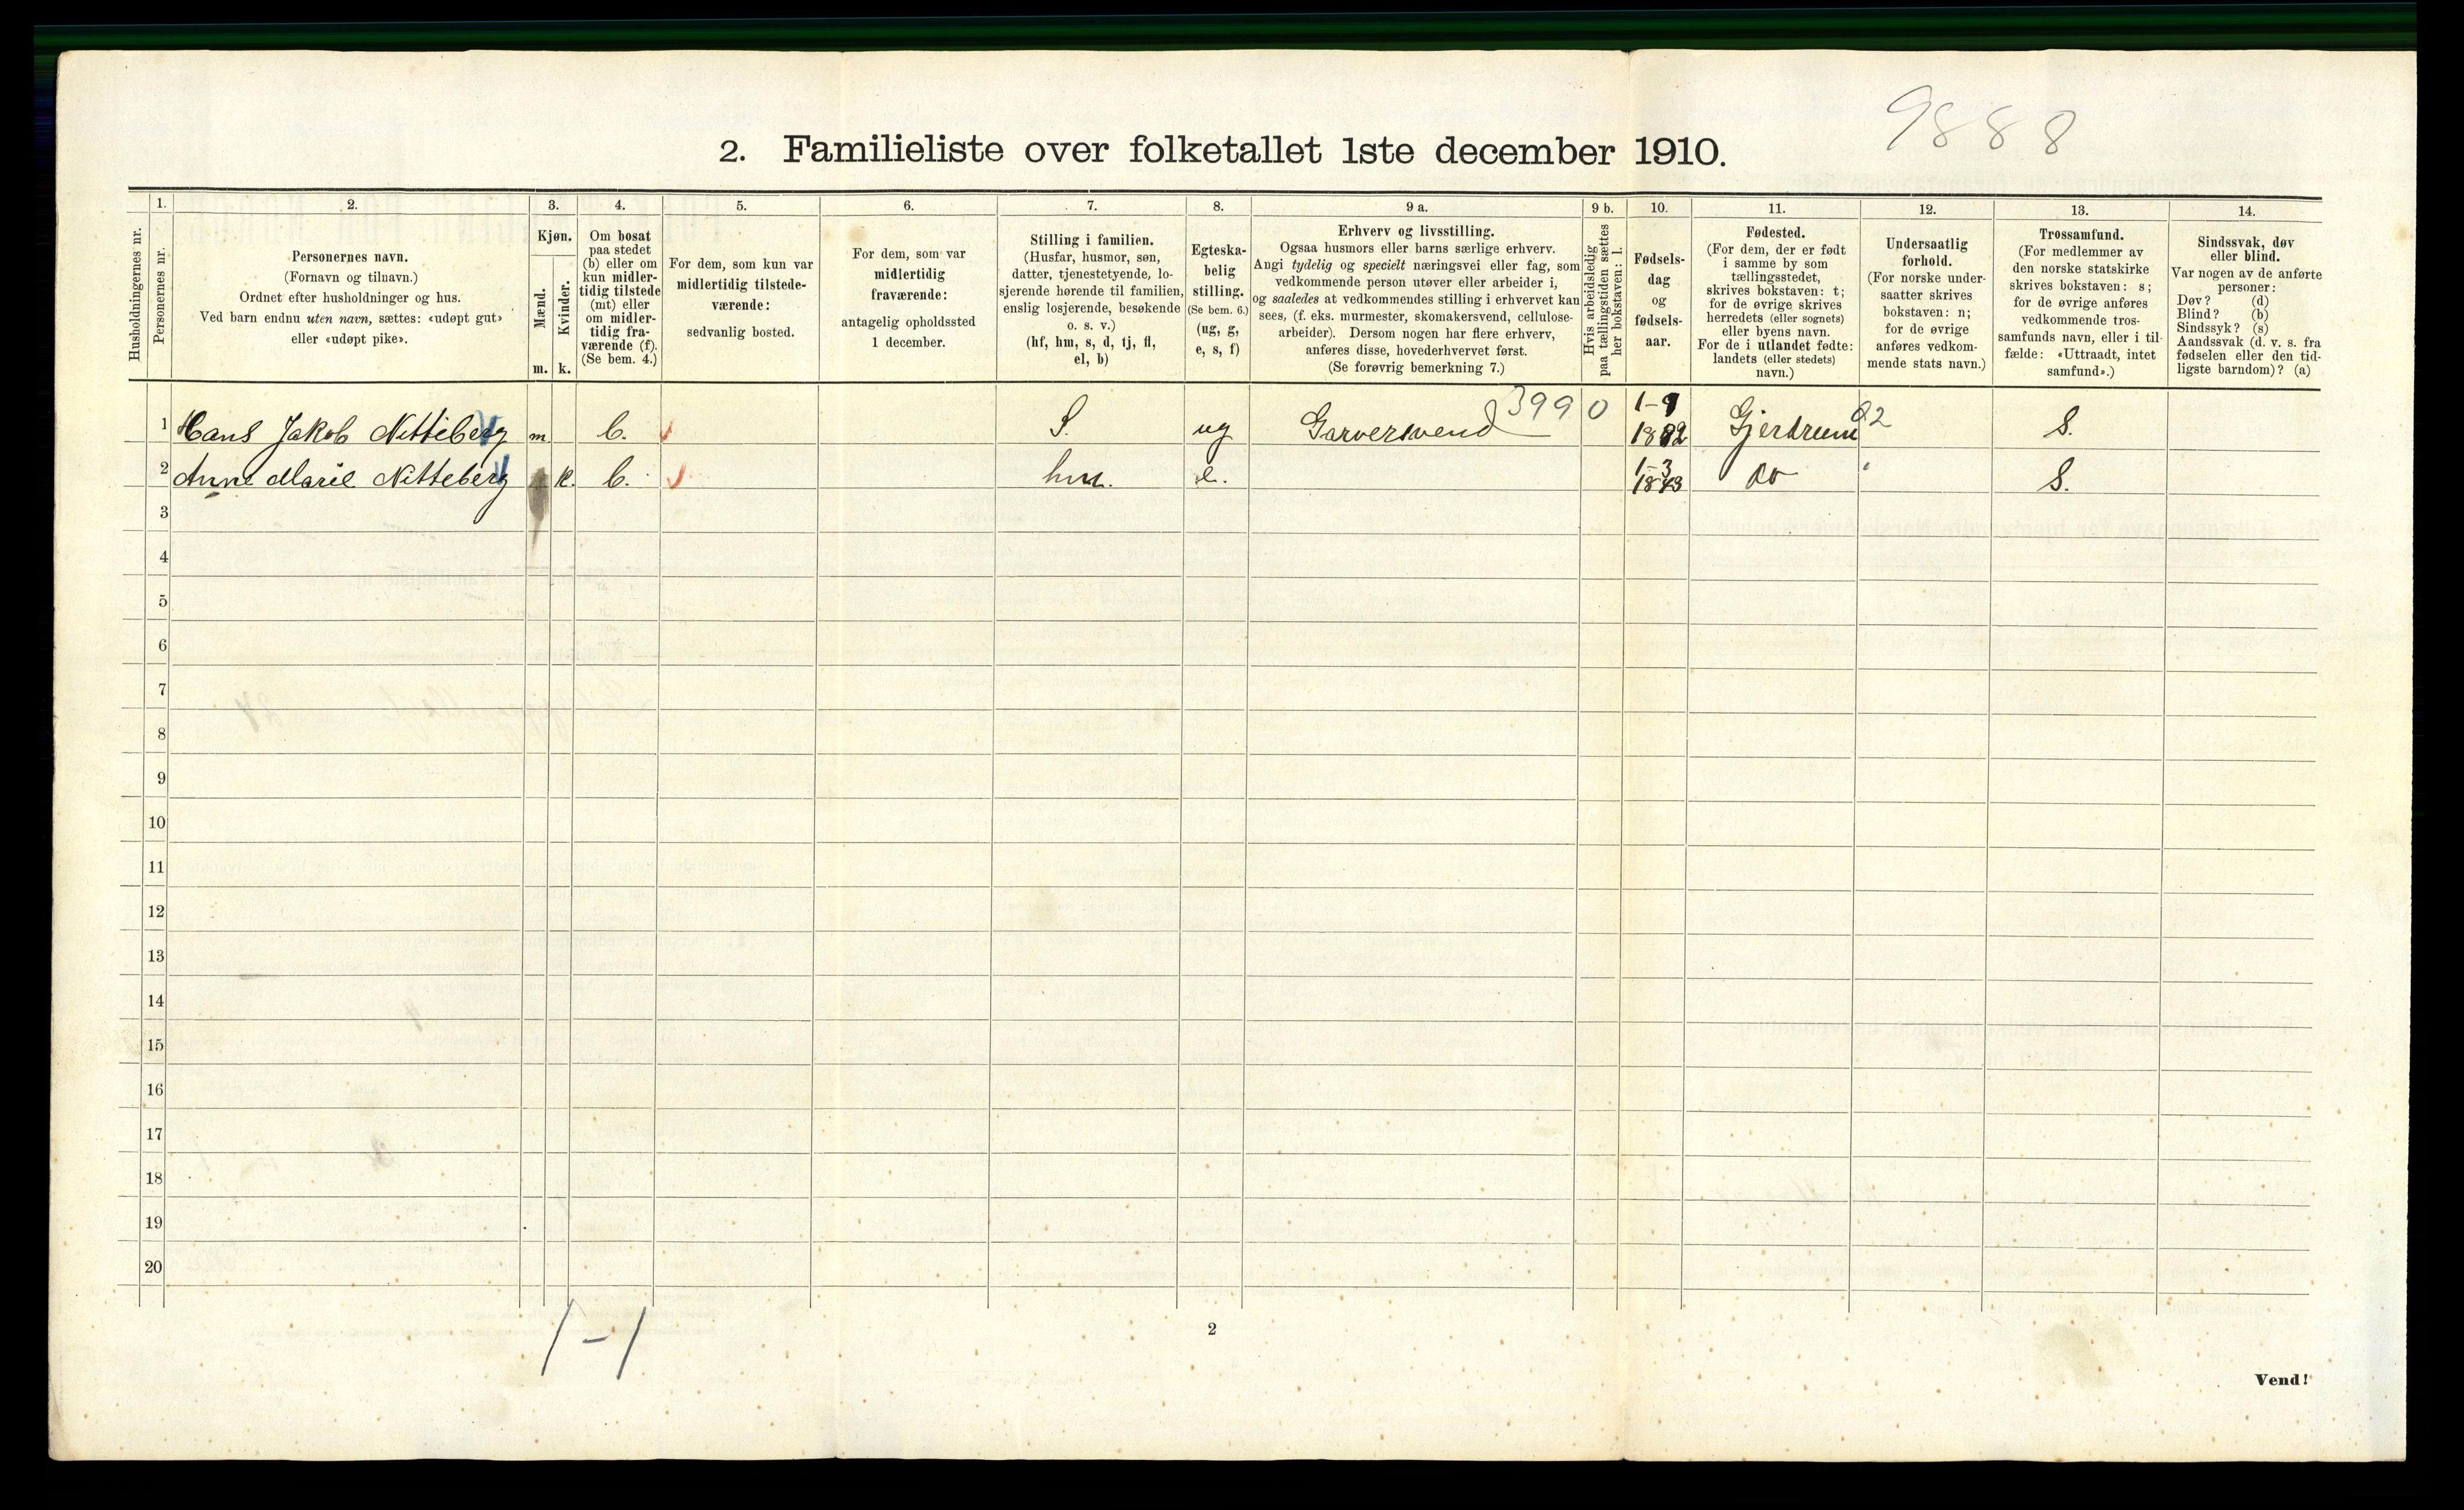 9888
2. Familieliste over folketallet 1ste december 1910.
Husholdningernes nr.
1.
Personernes nr.
2.
Personernes navn.
(Fornavn og tilnavn.)
Ordnet efter husholdninger og hus.
Ved barn endnu uten navn, sættes: «udøpt gut»
eller «udøpt pike».
3.
Kjøn.
Mænd.
Kvinder.
m.
k.
4.
Om bosat
paa stedet
(b) eller om
kun midler-
tidig tilstede
(mt) eller
om midler-
tidig fra-
værende (f).
(Se bem. 4.)
5.
For dem, som kun var
midlertidig tilstede-
værende:
sedvanlig bosted.
6.
For dem, som var
midlertidig
fraværende:
antagelig opholdssted
1 december.
7.
Stilling i familien.
(Husfar, husmor, søn,
datter, tjenestetyende, lo-
sjerende hørende til familien,
enslig losjerende, besøkende
o. s. v.)
(hf, hm, s, d, tj, fl,
el, b)
8.
Egteska-
belig
stilling.
(Se bem. 6.)
(ug, g,
e, s, f)
9 a.
Erhverv og livsstilling.
Ogsaa husmors eller barns særlige erhverv.
Angi tydelig og specielt næringsvei eller fag, som
vedkommende person utøver eller arbeider i,
og saaledes at vedkommendes stilling i erhvervet kan
sees, (f. eks. murmester, skomakersvend, cellulose-
arbeider). Dersom nogen har flere erhverv,
anføres disse, hovederhvervet først.
(Se forøvrig bemerkning 7.)
9 b.
Hvis arbeidsledig
paa tællingstiden sættes
her bokstaven: l.
10.
Fødsels-
dag
og
fødsels-
aar.
11.
Fødested.
(For dem, der er født
i samme by som
tællingsstedet,
skrives bokstaven: t;
for de øvrige skrives
herredets (eller sognets)
eller byens navn.
For de i utlandet fødte:
landets (eller stedets)
navn.)
12.
Undersaatlig
forhold.
(For norske under-
saatter skrives
bokstaven: n;
for de øvrige
anføres vedkom-
mende stats navn.)
13.
Trossamfund.
(For medlemmer av
den norske statskirke
skrives bokstaven: s;
for de øvrige anføres
vedkommende tros-
samfunds navn, eller i til-
fælde: «Uttraadt, intet
samfund».)
14.
Sindssvak, døv
eller blind.
Var nogen av de anførte
personer:
Døv? (d)
Blind? (b)
Sindssyk? (s)
Aandssvak (d. v. s. fra
fødselen eller den tid-
ligste barndom)? (a)
1 Hans Jakob Nitteberg m b. S. ug Garversvend 3990 1-9 1882 Gjerdrum 02 S.
2 Anne Marie Nitteberg k. b. hm. e. 1-3 1843 do S.
3
4
5
6
7
8
9
10
11
12
13
14
15
16
17
18
19
20
1-1
2
Vend!